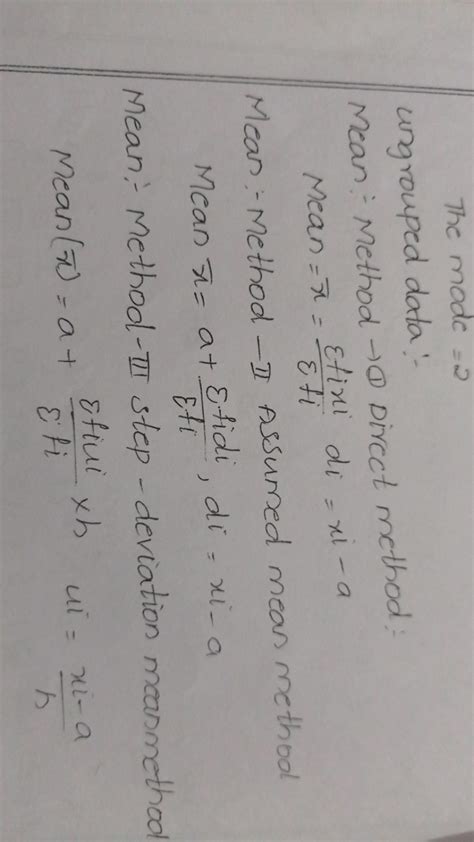 The mode = 2
ungrouped data:-
Mean:- Method → ① Direct method:-
Mean = x̄ = Σfixi / Σfi di = xi - a
Mean:- Method - II Assumed mean method
Mean x̄ = a + Σfidi / Σfi , di = xi - a
Mean:- Method - III step - deviation meanmethod
Mean(x̄) = a + Σfiui / Σfi × h ui = xi - a / h